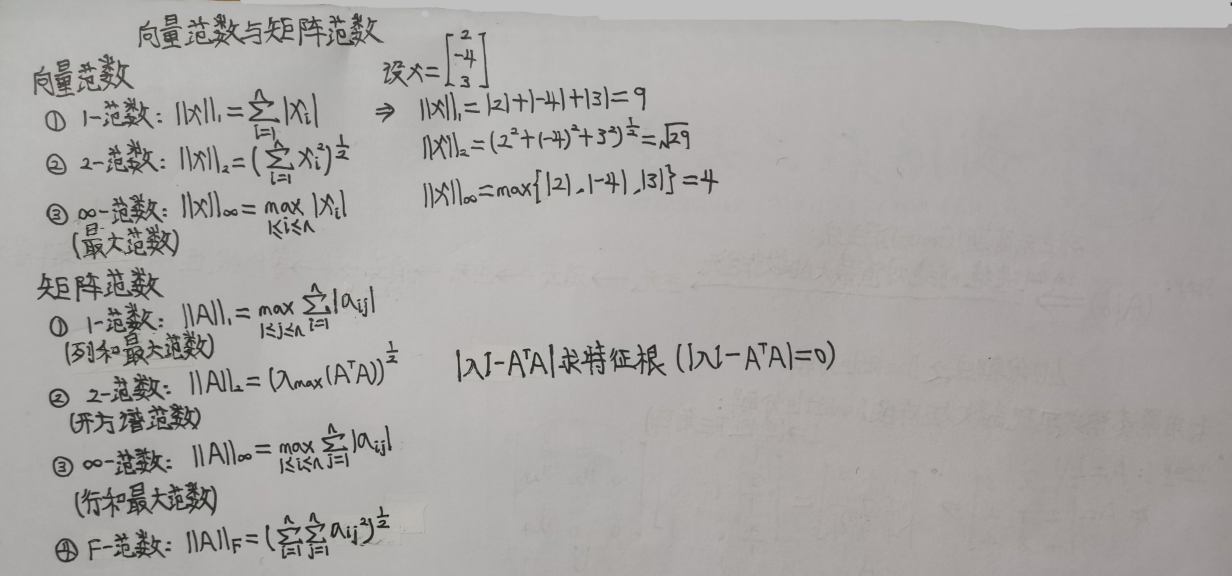 向量范数与矩阵范数
向量范数
① 1-范数: ||x||₁ = ∑ᵢ₌₁ⁿ |xᵢ|
② 2-范数: ||x||₂ = (∑ᵢ₌₁ⁿ xᵢ²)^½
③ ∞-范数: ||x||∞ = max_{1≤i≤n} |xᵢ|
(最大范数)
设x = [2 -4 3]
⇒ ||x||₁ = |2|+|-4|+|3| = 9
||x||₂ = (2²+(-4)²+3²)^½ = √29
||x||∞ = max{|2|、|-4|、|3|} = 4
矩阵范数
① 1-范数: ||A||₁ = max_{1≤j≤n} ∑ᵢ₌₁ⁿ |aᵢⱼ|
(列和最大范数)
② 2-范数: ||A||₂ = (λmax(AᵀA))^½
|λI-AᵀA|求特征根 (|λI-AᵀA|=0)
(开方谱范数)
③ ∞-范数: ||A||∞ = max_{1≤i≤n} ∑ⱼ₌₁ⁿ |aᵢⱼ|
(行和最大范数)
④ F-范数: ||A||F = (∑ᵢ₌₁ⁿ ∑ⱼ₌₁ⁿ aᵢⱼ²)^½